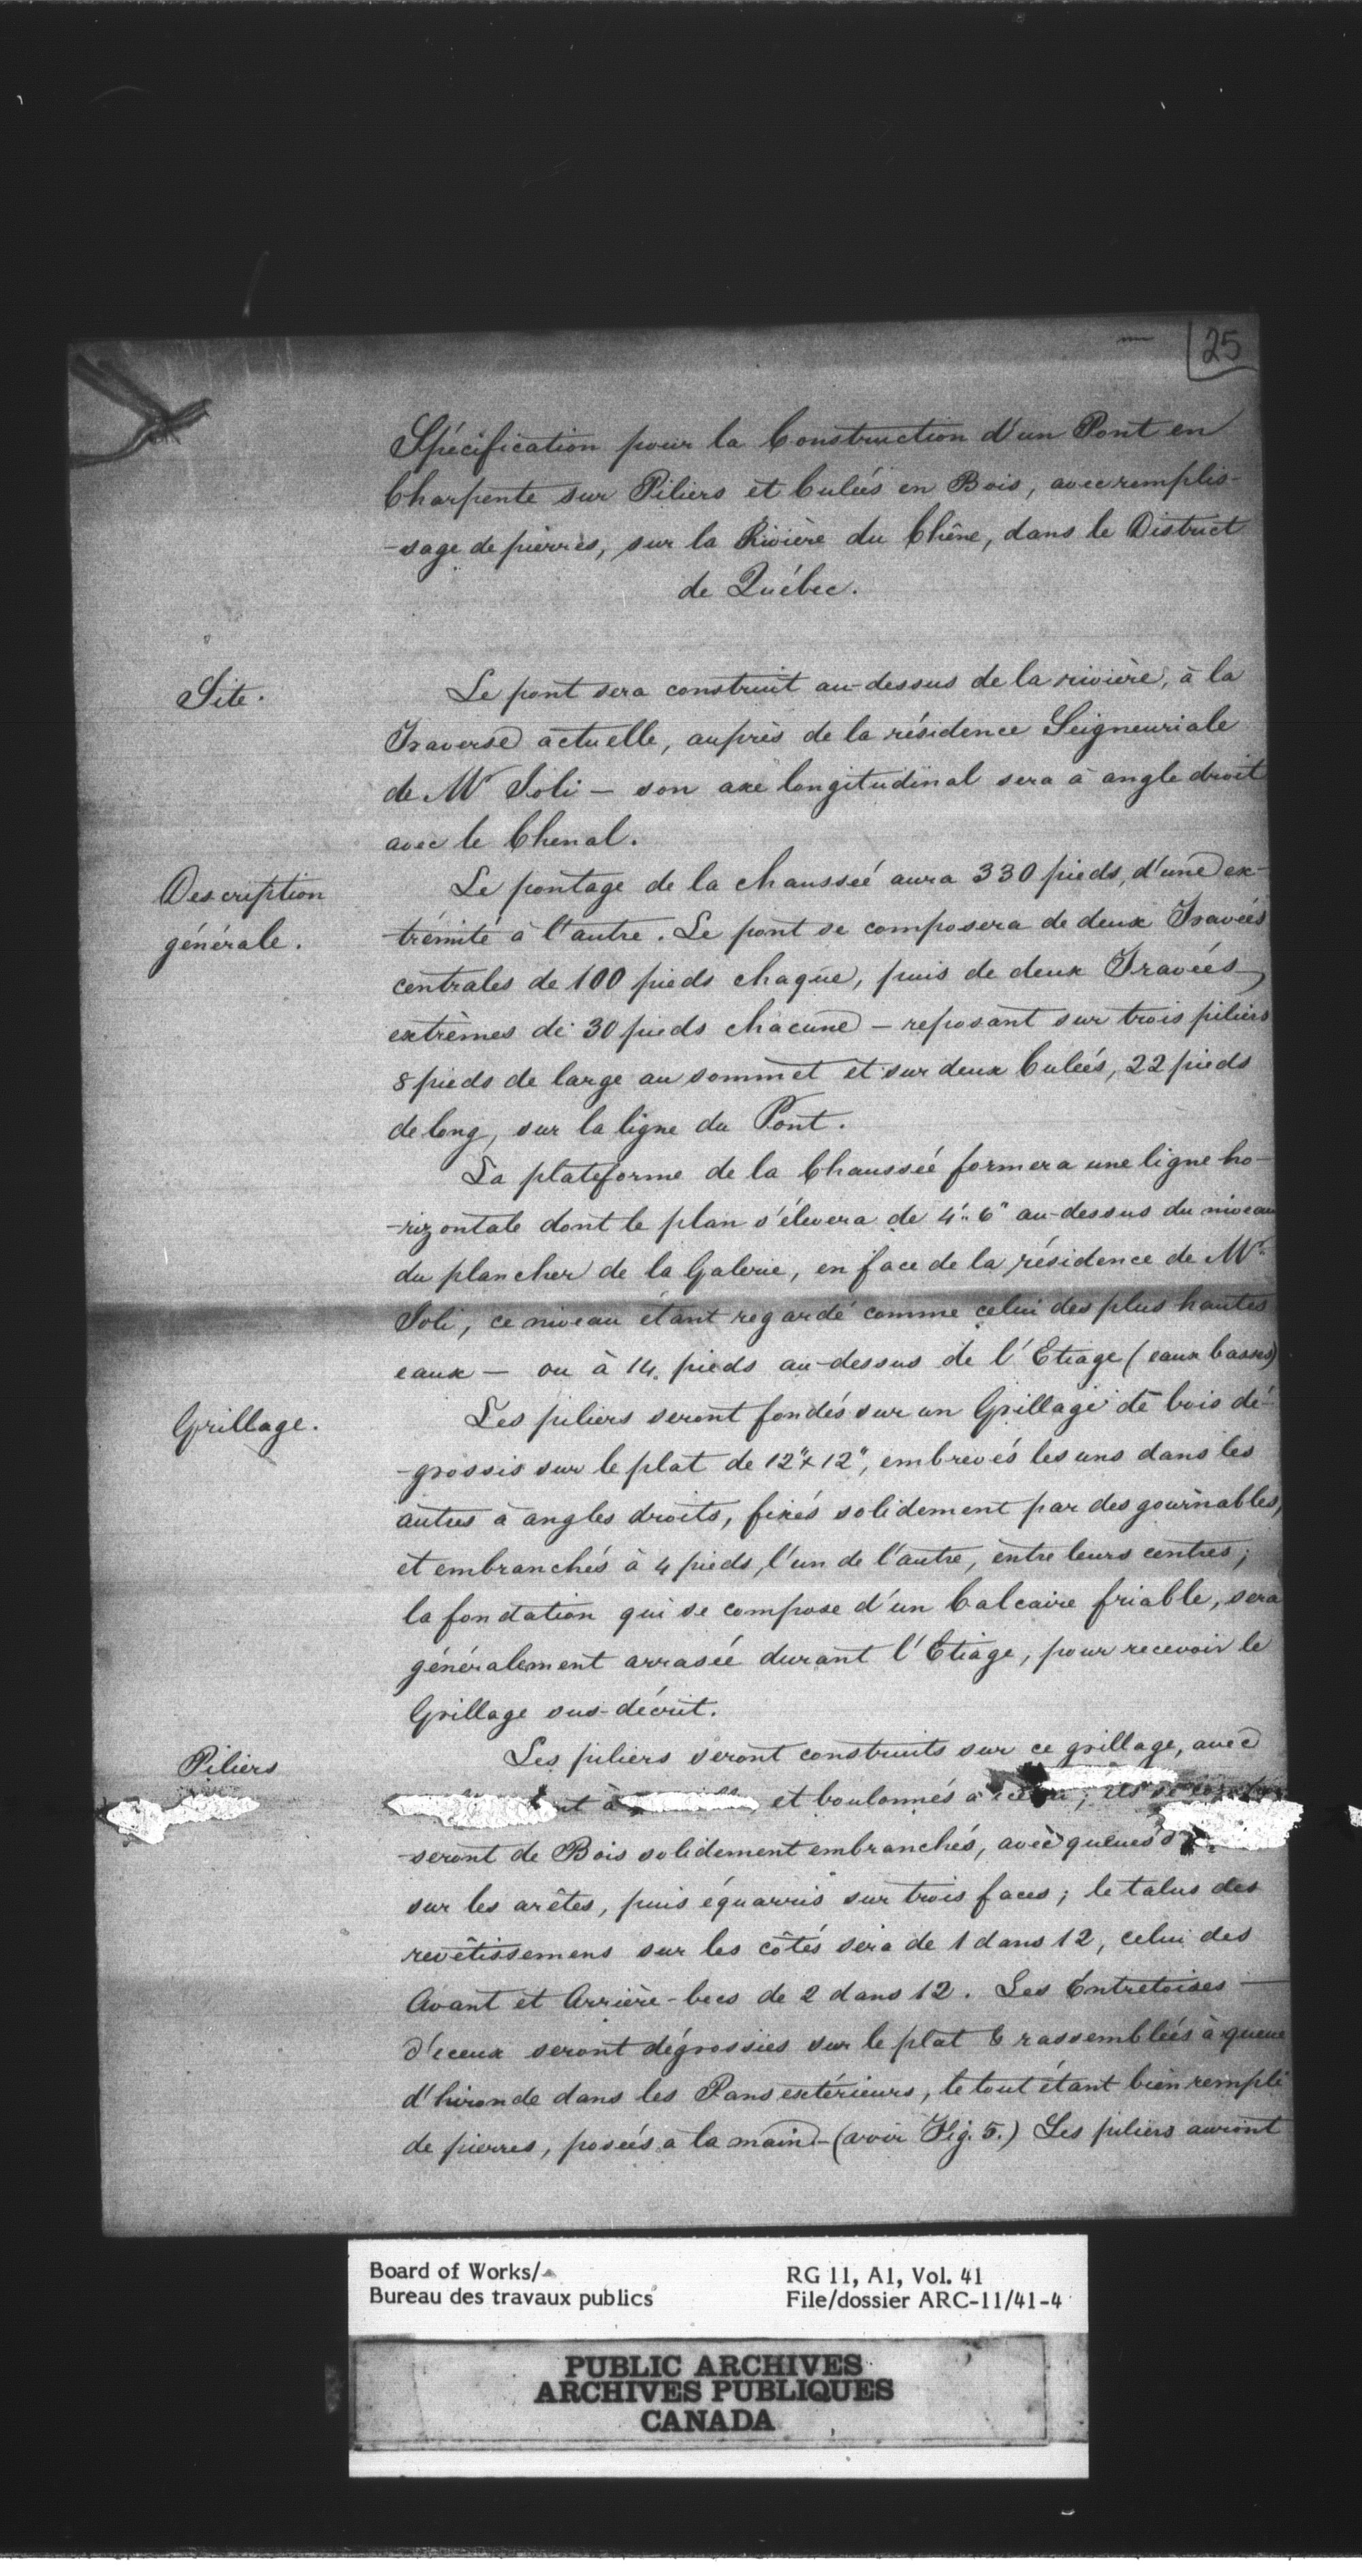 25
Spécification pour la Construction d'un Pont en
Charpente sur Piliers et Culées en Bois, avec remplis-
-sage de pierres, sur la Rivière du Chêne, dans le District
de Québec.
Site.
Le pont sera construit au-dessus de la rivière, à la
Traverse actuelle, auprès de la résidence Seigneuriale
de Mr Joli — son axe longitudinal sera à angle droit
avec le Chenal.
Description
générale.
Le pontage de la chaussée aura 330 pieds, d'une ex-
trémité à l'autre. Le pont se composera de deux Travées
centrales de 100 pieds chaque, puis de deux Travées
extrèmes de 30 pieds chacune — reposant sur trois piliers
8 pieds de large au sommet et sur deux Culées, 22 pieds
de long, sur la ligne du Pont.
La plateforme de la Chaussée formera une ligne ho-
-rizontale dont le plan s'élevera de 4'.. 6" au-dessus du niveau
du plancher de la Galerie, en face de la résidence de Mr
Joli, ce niveau étant regardé comme celui des plus hautes
eaux — ou à 14. pieds au-dessus de l'Etiage (eaux basses)
Grillage.
Les piliers seront fondés sur un Grillage de bois dé-
-grossis sur le plat de 12" x 12", embrevés les uns dans les
autres à angles droits, fixés solidement par des gournables,
et embranchés à 4 pieds, l'un de l'autre, entre leurs centres;
la fondation qui se compose d'un Calcaire friable, sera
généralement arrasée durant l'Etiage, pour recevoir le
Grillage sus-décrit.
Piliers
Les piliers seront construits sur ce grillage, avec
et boulonnés à
seront de Bois solidement embranchés, avec queues
sur les arêtes, puis équarris sur trois faces; le talus des
revêtissemens sur les côtés sera de 1 dans 12, celui des
Avant et Arrière-becs de 2 dans 12. Les Entretoises —
d'iceux seront dégrossies sur le plat & rassemblées à queue
d'hironde dans les Pans extérieurs, le tout étant bien rempli
de pierres, posées à la main — (voir Fig. 5.) Les piliers auront
Board of Works/
Bureau des travaux publics
RG 11, A1, Vol. 41
File/dossier ARC-11/41-4
PUBLIC ARCHIVES
ARCHIVES PUBLIQUES
CANADA